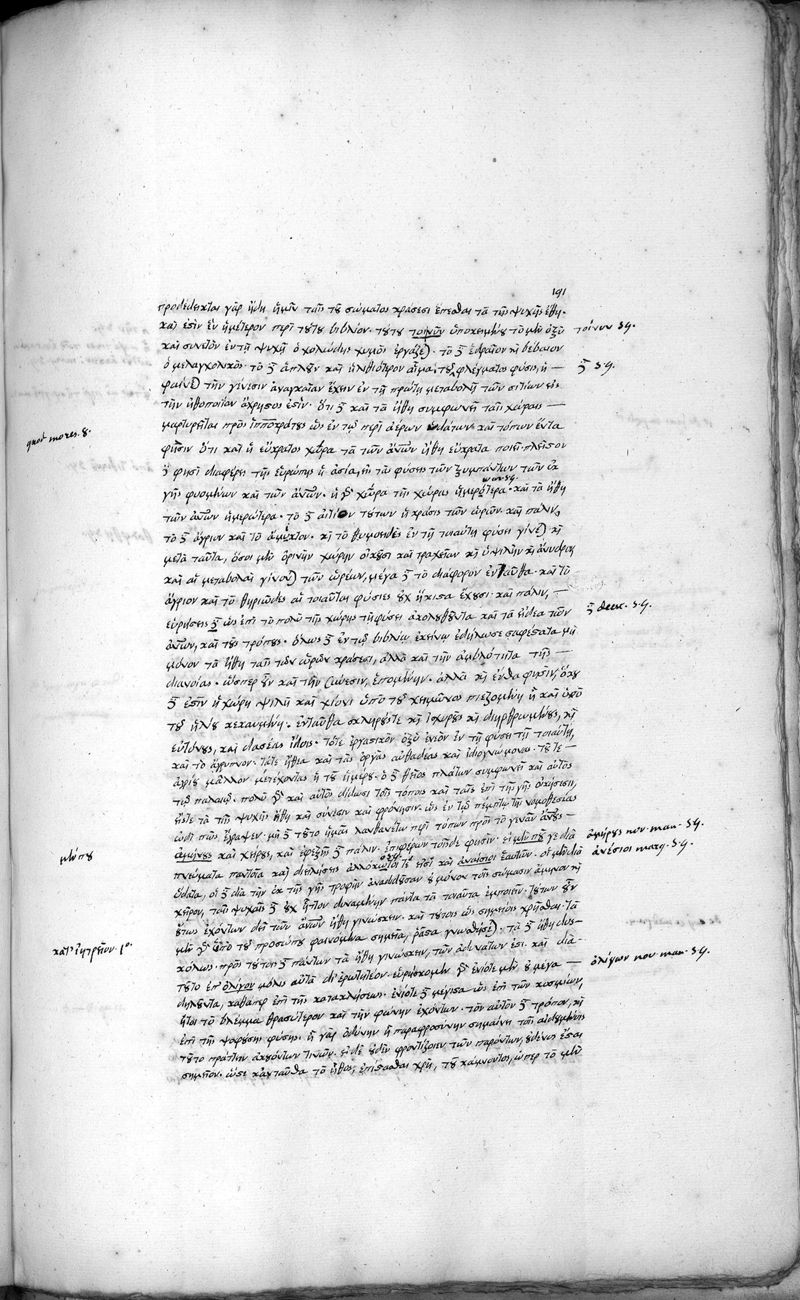 191
προδέδεικται γὰρ ἤδη ἡμῖν ταῖς τοῦ σώματος κράσεσι ἕπεσθαι τὰ τῆς ψυχῆς ἤθη.
καὶ ἐστὶν ἓν ἡμέτερον περὶ τούτου βιβλίον. τούτου τοίνυν ὑποκειμένου τὸ μὲν ὀξὺ
τοίνυν 39.
καὶ συνετὸν ἐν τῇ ψυχῇ ὁ χολώδης χυμὸς ἐργάζεται. τὸ δὲ ἑδραῖον καὶ βέβαιον
ὁ μελαγχολικός. τὸ δὲ ἁπλοῦν καὶ ἠλιθιώτερον αἷμα. τοῦ φλέγματος φύσις, ἡ
δὲ 39.
τὴν γένεσιν ἀναγκαίαν ἔχειν ἐν τῇ πρώτῃ μεταβολῇ τῶν σιτίων εἰς
τὴν ἠθοποιίαν ἄχρηστος ἐστίν. ὅτι δὲ καὶ τὰ ἤθη συμφωνεῖ ταῖς χώραις
quod mores. 8.
μαρτυρεῖται πρὸς ἱπποκράτους ὡς ἐν τῷ περὶ ἀέρων ὑδάτων καὶ τόπων ἔνθα
φησὶν ὅτι καὶ ἡ εὔκρατος χώρα τὰ τῶν ἀνθρώπων ἤθη εὔκρατα ποιεῖ. πλεῖστον
φησὶ διαφέρει τῆς εὐρώπης ἡ ἀσία, ἐς τὰς φύσεις τῶν ξυμπάντων τῶν ἐκ
γῆς φυομένων καὶ τῶν ἀνθρώπων. ἡ γὰρ χώρα τῆς χώρης ἡμερωτέρα. καὶ τὰ ἤθη
τῶν ἀνθρώπων ἡμερώτερα. τὸ δὲ αἴτιον τούτων ἡ κρᾶσις τῶν ὡρῶν. καὶ πάλιν,
τὸ δὲ ἄγριον καὶ τὸ ἄμικτον. καὶ τὸ θυμοειδὲς ἐν τῇ τοιαύτῃ φύσει γίνεται. καὶ
μετὰ ταῦτα, ὅσοι μὲν ὀρεινὴν χώρην οἰκοῦσι καὶ τραχεῖαν καὶ ὑψηλὴν καὶ ἄνυδρον
καὶ αἱ μεταβολαὶ γίνονται τῶν ὡρέων, μέγα δὲ τὸ διάφορον ἐνταῦθα. καὶ τὸ
ἄγριον καὶ τὸ θηριῶδες αἱ τοιαῦται φύσιες οὐχ ἥκιστα ἔχουσι. καὶ πάλιν,
εὑρήσεις δὲ ὡς ἐπὶ τὸ πολὺ τῆς χώρης τῇ φύσει ἀκολουθοῦντα καὶ τὰ εἴδεα τῶν
δὲ deest. 39.
ἀνθρώπων, καὶ τοὺς τρόπους. ὅλως δὲ ἐν τῷ βιβλίῳ ἐκείνῳ ἐδήλωσε σαφέστατα μὴ
μόνον τὰ ἤθη ταῖς τῶν ὡρῶν κράσεσι, ἀλλὰ καὶ τὴν ἀμβλύτητα τῆς
διανοίας. ὥσπερ οὖν καὶ τὴν σύνεσιν, ἑπομένην. ἀλλὰ καὶ ἔνθα φησίν, ὅκου
δὲ ἐστὶν ἡ χώρη ψιλὴ καὶ χίονι ὑπὸ τοῦ χειμῶνος πιεζομένη ἢ καὶ ὑπὸ
τοῦ ἡλίου κεκαυμένη. ἐνταῦθα σκληρούς τε καὶ ἰσχνοὺς καὶ διηρθρωμένους, καὶ
εὐτόνους, καὶ δασέας ἴδοις. τότε ἐργατικὸν ὀξὺ ἐνεὸν ἐν τῇ φύσει τῇ τοιαύτῃ,
καὶ τὸ ἄγρυπνον. τά τε ἤθεα καὶ τὰς ὀργὰς αὐθάδεας καὶ ἰδιογνώμονας. τοῦ τε
ἀγρίου μᾶλλον μετέχοντας ἢ τοῦ ἡμέρου. ὁ δὲ θεῖος πλάτων συμφωνεῖ καὶ αὐτὸς
τῷ παλαιῷ. πολὺ γὰρ καὶ αὐτὸς δίδωσι τοῖς τόποις καὶ ταῖς ἐπὶ τῆς γῆς οἰκήσεσι,
ἔς τε τὰ τῆς ψυχῆς ἤθη καὶ σύνεσιν καὶ φρόνησιν. ὡς ἐν τῷ πέμπτῳ τῆς νομοθεσίας
ὡδί πως, ἔγραψεν. μὴ δὲ τοῦτο ἡμᾶς λανθανέτω περὶ τόπων πρὸς τὸ γεννᾶν ἀνθρώπους
ἀμείνους καὶ χείρους, καὶ ἐφεξῆς δὲ πάλιν. ἐπιφέρων τόδε φησίν. οἱ μέν που γε διὰ
ἀμείνους non man. 39.
μέν που
πνεύματα παντοῖα καὶ διειλήσεις ἀλλόκοτοί τέ εἰσι καὶ ἀναίσιοι ἑαυτῶν. οἱ μὲν διὰ
ἀναίσιοι marg. 39.
ὕδατα, οἱ δὲ διὰ τὴν ἐκ τῆς γῆς τροφὴν ἀναδιδοῦσαν οὐ μόνον τοῖς σώμασιν ἀμείνω καὶ
χείρον, ταῖς ψυχαῖς δὲ οὐχ ἧττον δυναμένην πάντα τὰ τοιαῦτα ἐμποιεῖν. τούτων οὖν
οὕτως ἐχόντων δεῖ τῶν ἀνθρώπων ἤθη γινώσκειν. καὶ τούτοις ὡς σημείοις χρῆσθαι. τὰ
μὲν γὰρ ὑπὸ τοῦ προσώπου φαινόμενα σημεῖα, ῥᾷστα γνωσθῆναι. τὰ δὲ ἤθη δυσ-
κόλως. πρὸς τούτοις δὲ πάντων τὰ ἤθη γινώσκειν, τῶν ἀδυνάτων ἐστί. καὶ διὰ
κατ' ἰητρεῖον. 1ο.
τοῦτο ἐπ' ὀλίγον μόλις αὐτὰ δι' ἐρωτητέον. εὑρίσκομεν γὰρ ἐνίοτε μὲν οὐ μέγα
ὀλίγων non man. 39.
δηλοῦντα, καθάπερ ἐπὶ τῆς κατακλίσεως. ἐνίοτε δὲ μέγιστα ὡς ἐπὶ τῶν κοσμίων,
ἤτοι τὸ βλέμμα θρασύτερον καὶ τὴν φωνὴν ἐχόντων. τὸν αὐτὸν δὲ τρόπον, καὶ
ἐπὶ τῆς ψαύσεως φύσης. ἢ γὰρ ὀδύνην ἢ παραφροσύνην σημαίνει τοῖς αἰδουμένοις
τοῦτο πράττειν ἀκουόντων τινῶν. εἰ δὲ οὐδὲν φροντίζοιεν τῶν παρόντων, οὐδενὸς ἔσται
σημεῖον. ὥστε κἀνταῦθα τὸ ἦθος, ἐπίστασθαι χρὴ, τοῦ κάμνοντος, ὥσπερ τὸ μὲν